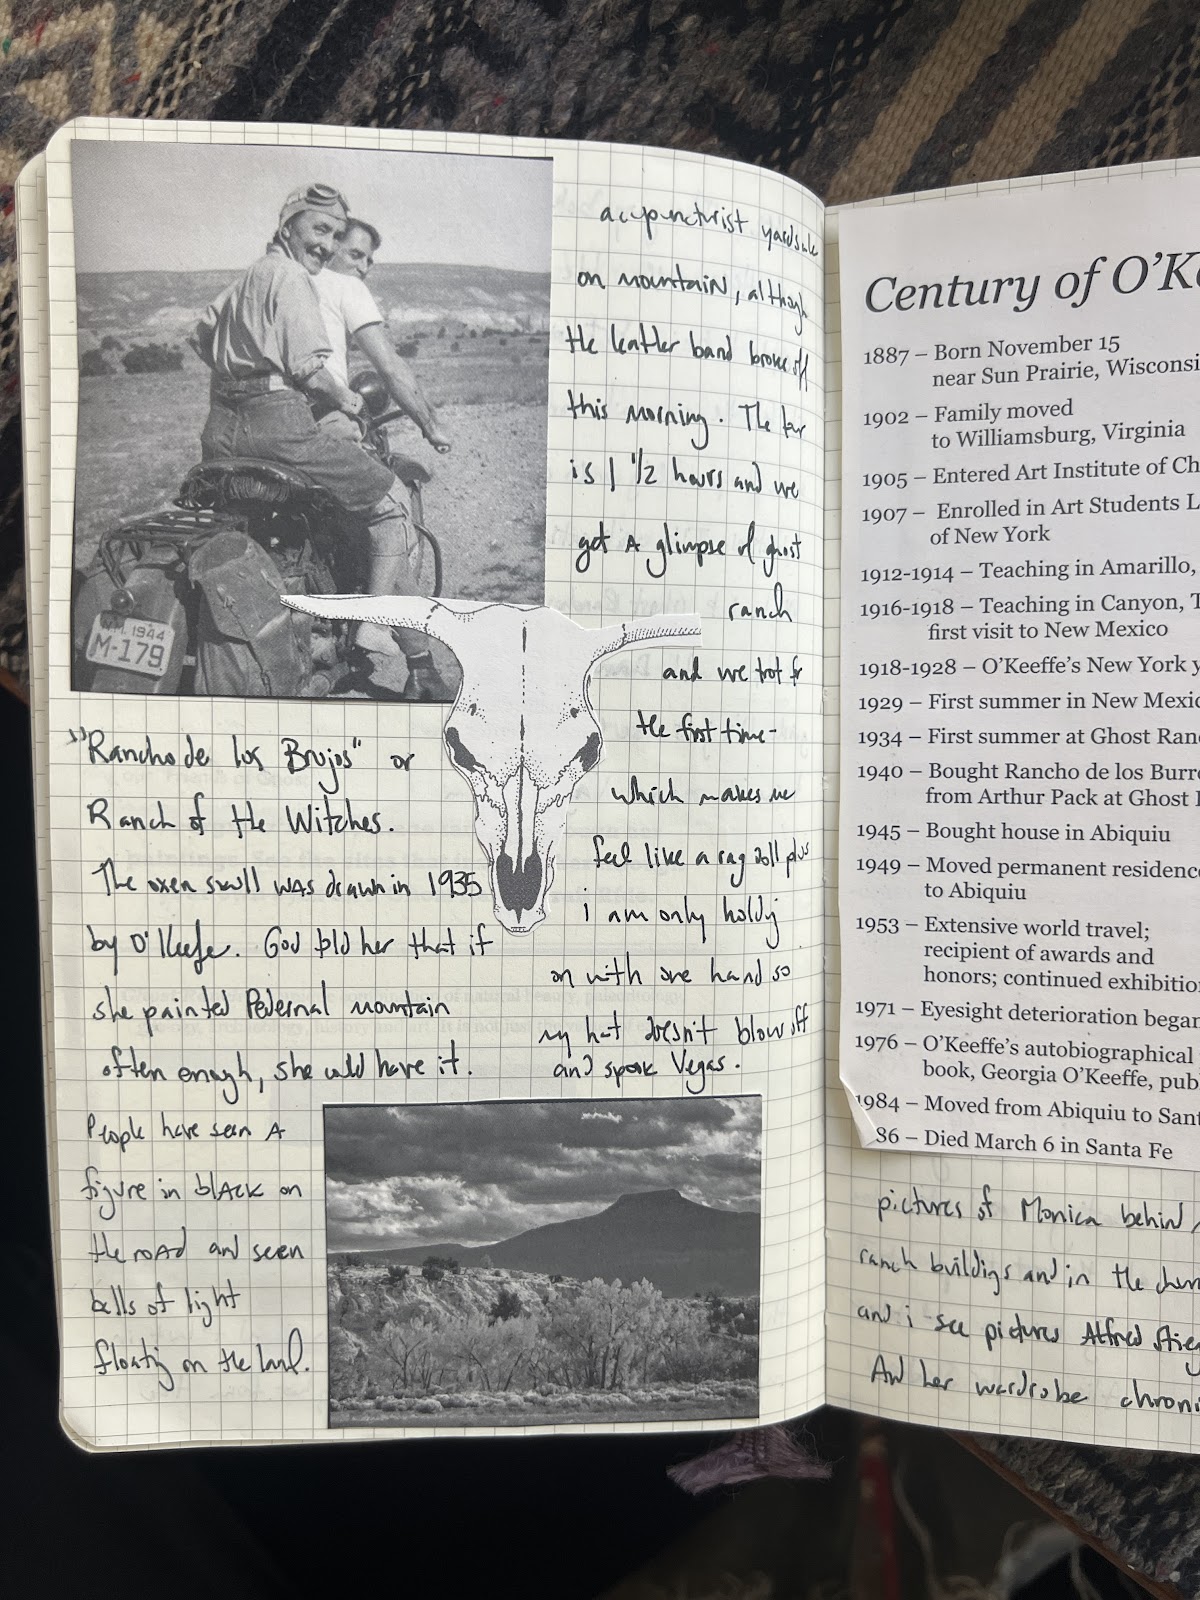 acupuncturist yardsale
on mountain, although
the leather band broke off
this morning. The tour
is 1 1/2 hours and we
get A glimpse of ghost
ranch
and we trot for
the first time-
which makes me
feel like a rag doll plus
i am only holdig
on with one hand so
my hat doesn't blow off
and spook Vegas.
N.M. 1944
M-179
"Rancho de los Brujos" or
Ranch of the Witches.
The oxen skull was drawn in 1935
by O'Keefe. God told her that if
she painted Pedernal mountain
often enogh, she could have it.
People have seen A
figure in blACK on
the roAd and seen
balls of light
floatig on the land.
Century of O'Ke
1887 – Born November 15
near Sun Prairie, Wisconsi
1902 – Family moved
to Williamsburg, Virginia
1905 – Entered Art Institute of Ch
1907 – Enrolled in Art Students L
of New York
1912-1914 – Teaching in Amarillo,
1916-1918 – Teaching in Canyon, T
first visit to New Mexico
1918-1928 – O'Keeffe's New York y
1929 – First summer in New Mexic
1934 – First summer at Ghost Ran
1940 – Bought Rancho de los Burr
from Arthur Pack at Ghost
1945 – Bought house in Abiquiu
1949 – Moved permanent residence
to Abiquiu
1953 – Extensive world travel;
recipient of awards and
honors; continued exhibitio
1971 – Eyesight deterioration began
1976 – O'Keeffe's autobiographical
book, Georgia O'Keeffe, pub
1984 – Moved from Abiquiu to Sant
86 – Died March 6 in Santa Fe
pictures of Monica behind
ranch buildigs and in the
and i see pictures Alfred Stieg
And her wardrobe chroni